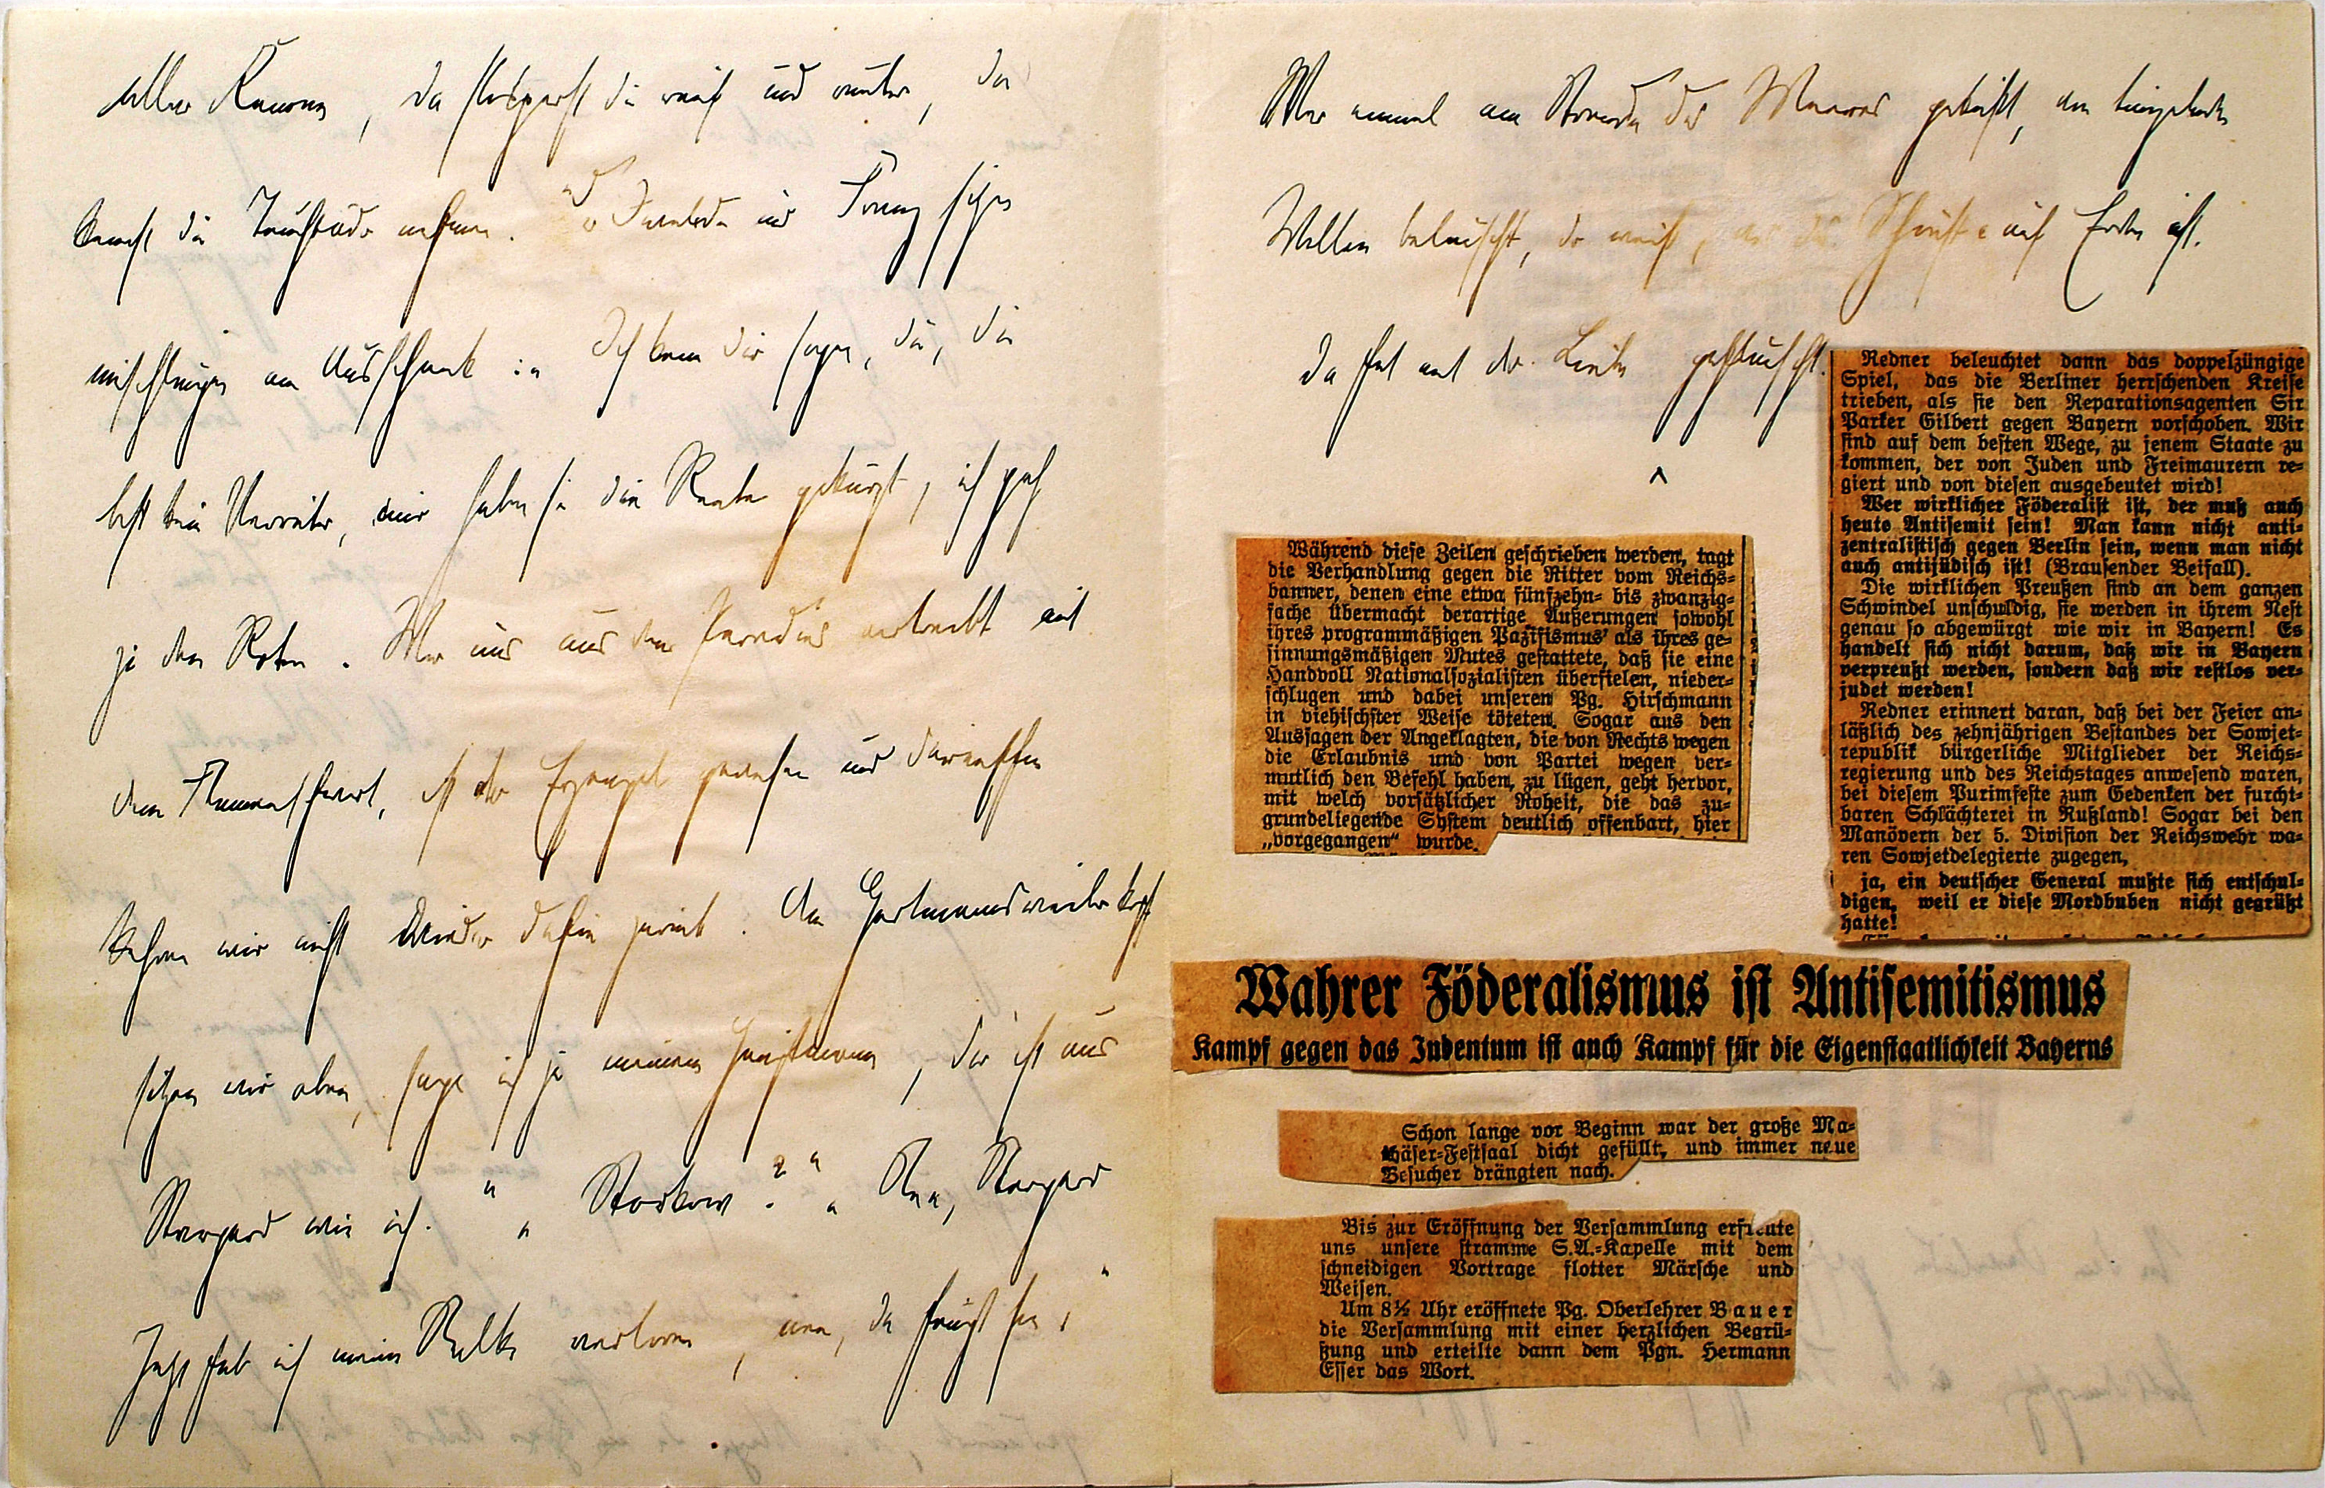 aller Rennen, da stolperst du rauf und runter, da
kannst du
am Ausschank in Ich kann dir sagen, du, du
bist kein Verräter, mir haben sie die Rente gekürzt, ich geh
zu den Roten. Wer uns aus dem Paradies vertreibt mit
dem Flammenschwert, ist der Erzengel gewesen und daraufhin
kehren wir nicht wieder dahin zurück. Am Hartmannsweilerkopf
sitzen wir oben, sage ich zu meinem Hauptmann, der ist aus
Stargard wie ich. " " Storkow? " " Nee, Stargard
Jetzt hab ich meine Nelke verloren, nee, da hängt sie. "
Wer einmal am Strande des Meeres geküßt, von tingelnden
Wellen belauscht, der weiß, was das Schönste auf Erden ist,
der hat mit der Liebe geplauscht.
Redner beleuchtet dann das doppelzüngige
Spiel, das die Berliner herrschenden Kreise
trieben, als sie den Reparationsagenten Sir
Parker Gilbert gegen Bayern vorschoben. Wir
sind auf dem besten Wege, zu jenem Staate zu
kommen, der von Juden und Freimaurern re-
giert und von diesen ausgebeutet wird!
Wer wirklicher Föderalist ist, der muß auch
heute Antisemit sein! Man kann nicht anti-
zentralistisch gegen Berlin sein, wenn man nicht
auch antijüdisch ist! (Brausender Beifall).
Die wirklichen Preußen sind an dem ganzen
Schwindel unschuldig, sie werden in ihrem Nest
genau so abgewürgt wie wir in Bayern! Es
handelt sich nicht darum, daß wir in Bayern
verpreußt werden, sondern daß wir restlos ver-
judet werden!
Redner erinnert daran, daß bei der Feier an-
läßlich des zehnjährigen Bestandes der Sowjet-
republik bürgerliche Mitglieder der Reichs-
regierung und des Reichstages anwesend waren,
bei diesem Purimfeste zum Gedenken der furcht-
baren Schlächterei in Rußland! Sogar bei den
Manövern der 5. Division der Reichswehr wa-
ren Sowjetdelegierte zugegen,
ja, ein deutscher General mußte sich entschul-
digen, weil er diese Mordbuben nicht gegrüßt
hatte!
Während diese Zeilen geschrieben werden, tagt
die Verhandlung gegen die Ritter vom Reichs-
banner, denen eine etwa fünfzehn- bis zwanzig-
fache Übermacht derartige Äußerungen sowohl
ihres programmäßigen Pazifismus' als ihres ge-
sinnungsmäßigen Mutes gestattete, daß sie eine
Handvoll Nationalsozialisten überfielen, nieder-
schlugen und dabei unseren Pg. Hirschmann
in viehischster Weise töteten. Sogar aus den
Aussagen der Angeklagten, die von Rechts wegen
die Erlaubnis und von Partei wegen ver-
mutlich den Befehl haben, zu lügen, geht hervor,
mit welch vorsätzlicher Roheit, die das zu-
grundeliegende System deutlich offenbart, hier
„vorgegangen“ wurde.
Wahrer Föderalismus ist Antisemitismus
Kampf gegen das Judentum ist auch Kampf für die Eigenstaatlichkeit Bayerns
Schon lange vor Beginn war der große Ma-
thäser-Festsaal dicht gefüllt, und immer neue
Besucher drängten nach.
Bis zur Eröffnung der Versammlung erfreute
uns unsere stramme S.A.-Kapelle mit dem
schneidigen Vortrage flotter Märsche und
Weisen.
Um 8½ Uhr eröffnete Pg. Oberlehrer Bauer
die Versammlung mit einer herzlichen Begrü-
ßung und erteilte dann dem Pgn. Hermann
Esser das Wort.